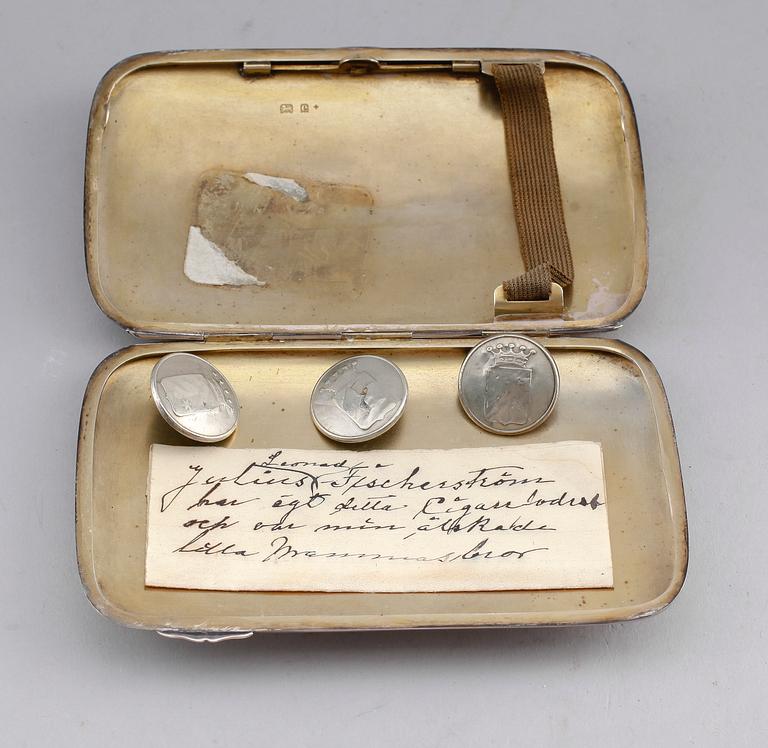 Leonad
Julius Fischerström
har ägt detta Cigarr fodral
och var min älskade
lilla Mammas bror